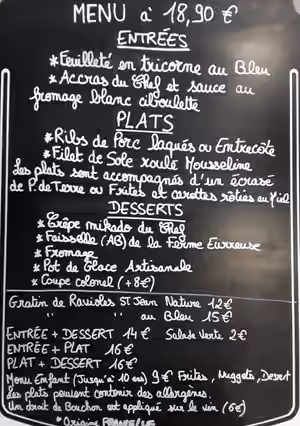 MENU à 18,90 €
ENTRÉES
* Feuilleté en tricorne au Bleu
* Accras du Chef et sauce au
fromage blanc ciboulette
PLATS
* Ribs de Porc laqués ou Entrecôte
* Filet de Sole roulé Mousseline
Les plats sont accompagnés d'un écrasé
de P. de Terre ou Frites et carottes rôties au miel
DESSERTS
* Crêpe mikado du Chef
* Faisselle (AB) de la Ferme Eurreuse
* Fromage
* Pot de Glace Artisanale
* Coupe colonel (+8€)
Gratin de Ravioles St Jean Nature 12€
" " au Bleu 15€
ENTRÉE + DESSERT 14€ Salade Verte 2€
ENTRÉE + PLAT 16€
PLAT + DESSERT 16€
Menu Enfant (Jusqu'à 10 ans) 9€ Frites, Nuggets, Dessert
Les plats peuvent contenir des allergènes.
Un droit de Bouchon est appliqué sur le vin (6€)
* Origine FRANCE/UE